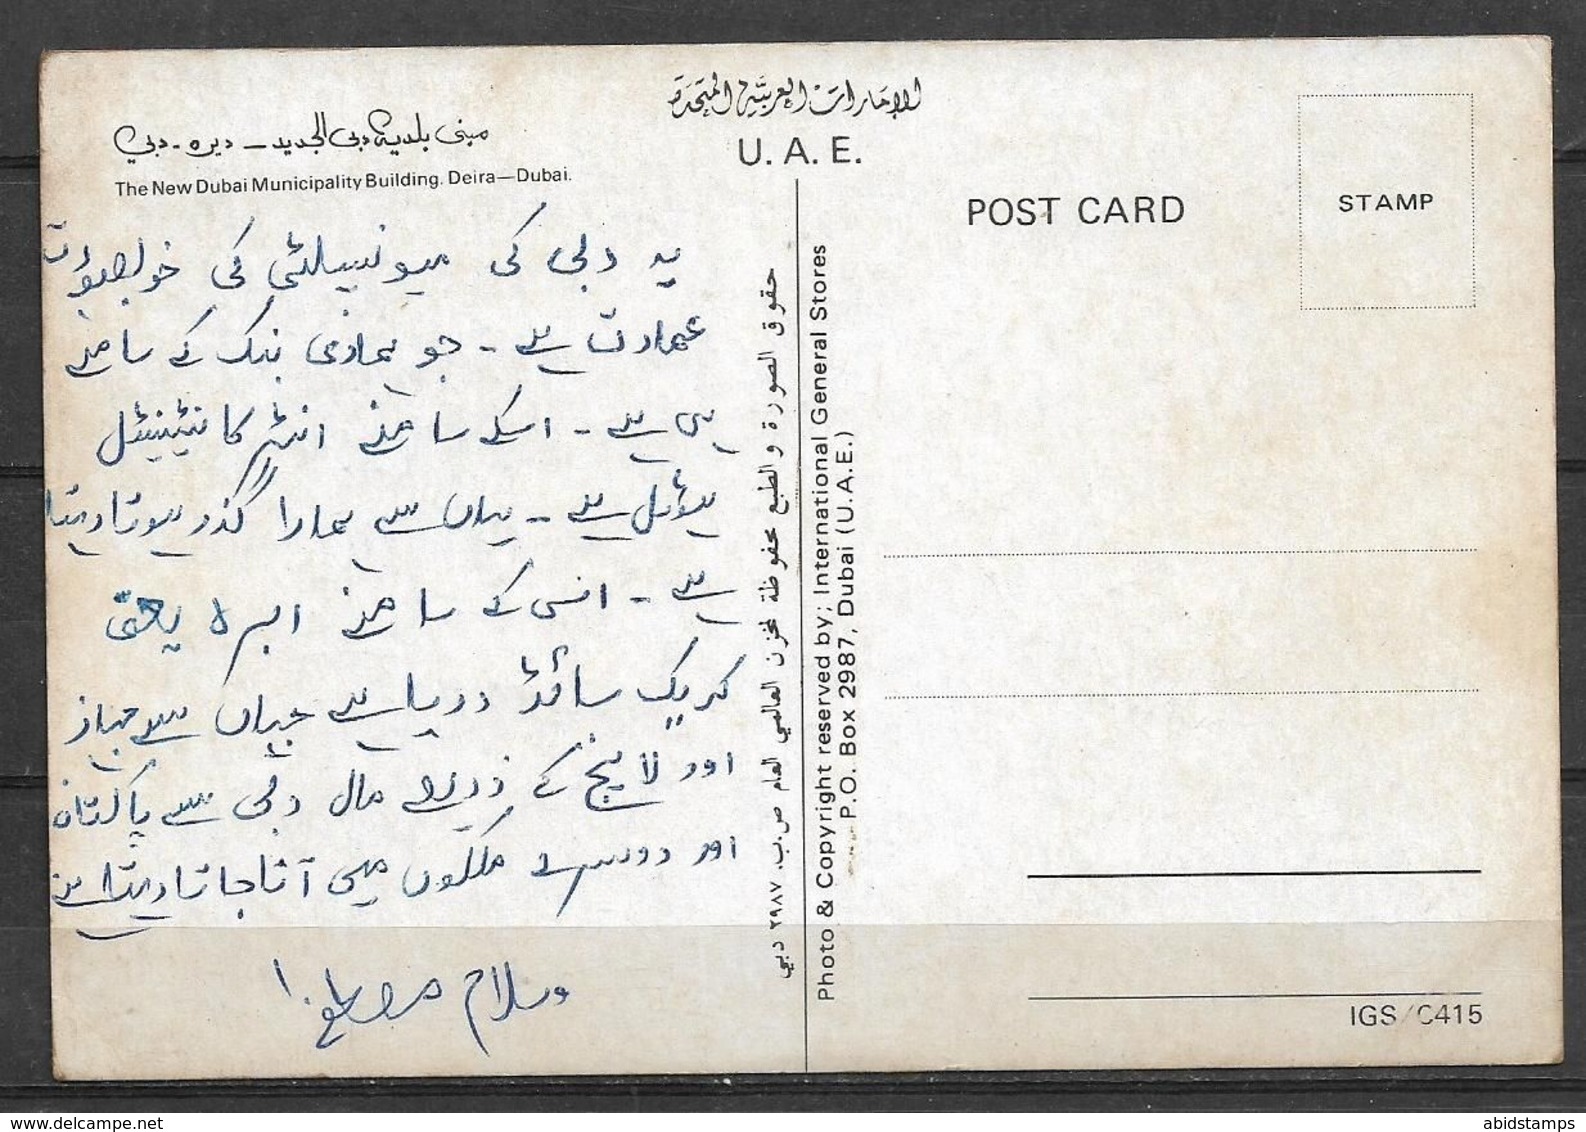 الإمارات العربية المتحدة
U. A. E.
مبنى بلدية دبي الجديد – ديره – دبي
The New Dubai Municipality Building. Deira—Dubai.
POST CARD
STAMP
یہ دبی کی میونسپلٹی کی خوبصورت
عمارت ہے - جو ہماری بنک کے سامنے
ہی ہے - اسکے سامنے انٹر کانٹینینٹل
ہوٹل ہے - یہاں سے ہمارا گذر ہوتا رہتا
ہے - اس کے سامنے ابرہ یعنی
کریک سائڈ دریا ہے جہاں سے جہاز
اور لانچ کے ذریعے مال دبی سے پاکستان
اور دوسرے ملکوں میں آتا جاتا رہتا ہے
وسلام مصطفےٰ
حقوق الصورة والطبع محفوظة لمخزن العالمي العام ص.ب. ٢٩٨٧ دبي
Photo & Copyright reserved by; International General Stores
P.O. Box 2987, Dubai (U.A.E.)
IGS/C415
abidstamps